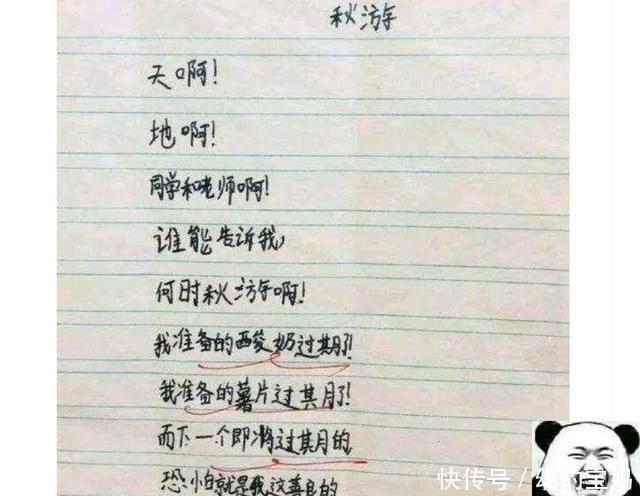 秋游
天啊！
地啊！
同学和老师啊！
谁能告诉我，
何时秋游啊！
我准备的酸奶过期了！
我准备的薯片过期了！
而下一个即将过期的
恐怕就是我这善良的
快传号/幼的宝妈